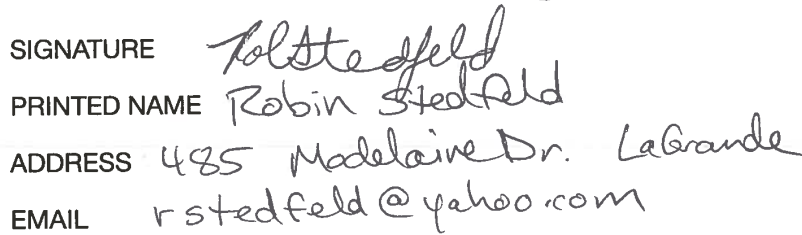 SIGNATURE Rolstedfeld
PRINTED NAME Robin Stedfeld
ADDRESS 485 Modelaine Dr. LaGrande
EMAIL rstedfeld@yahoo.com